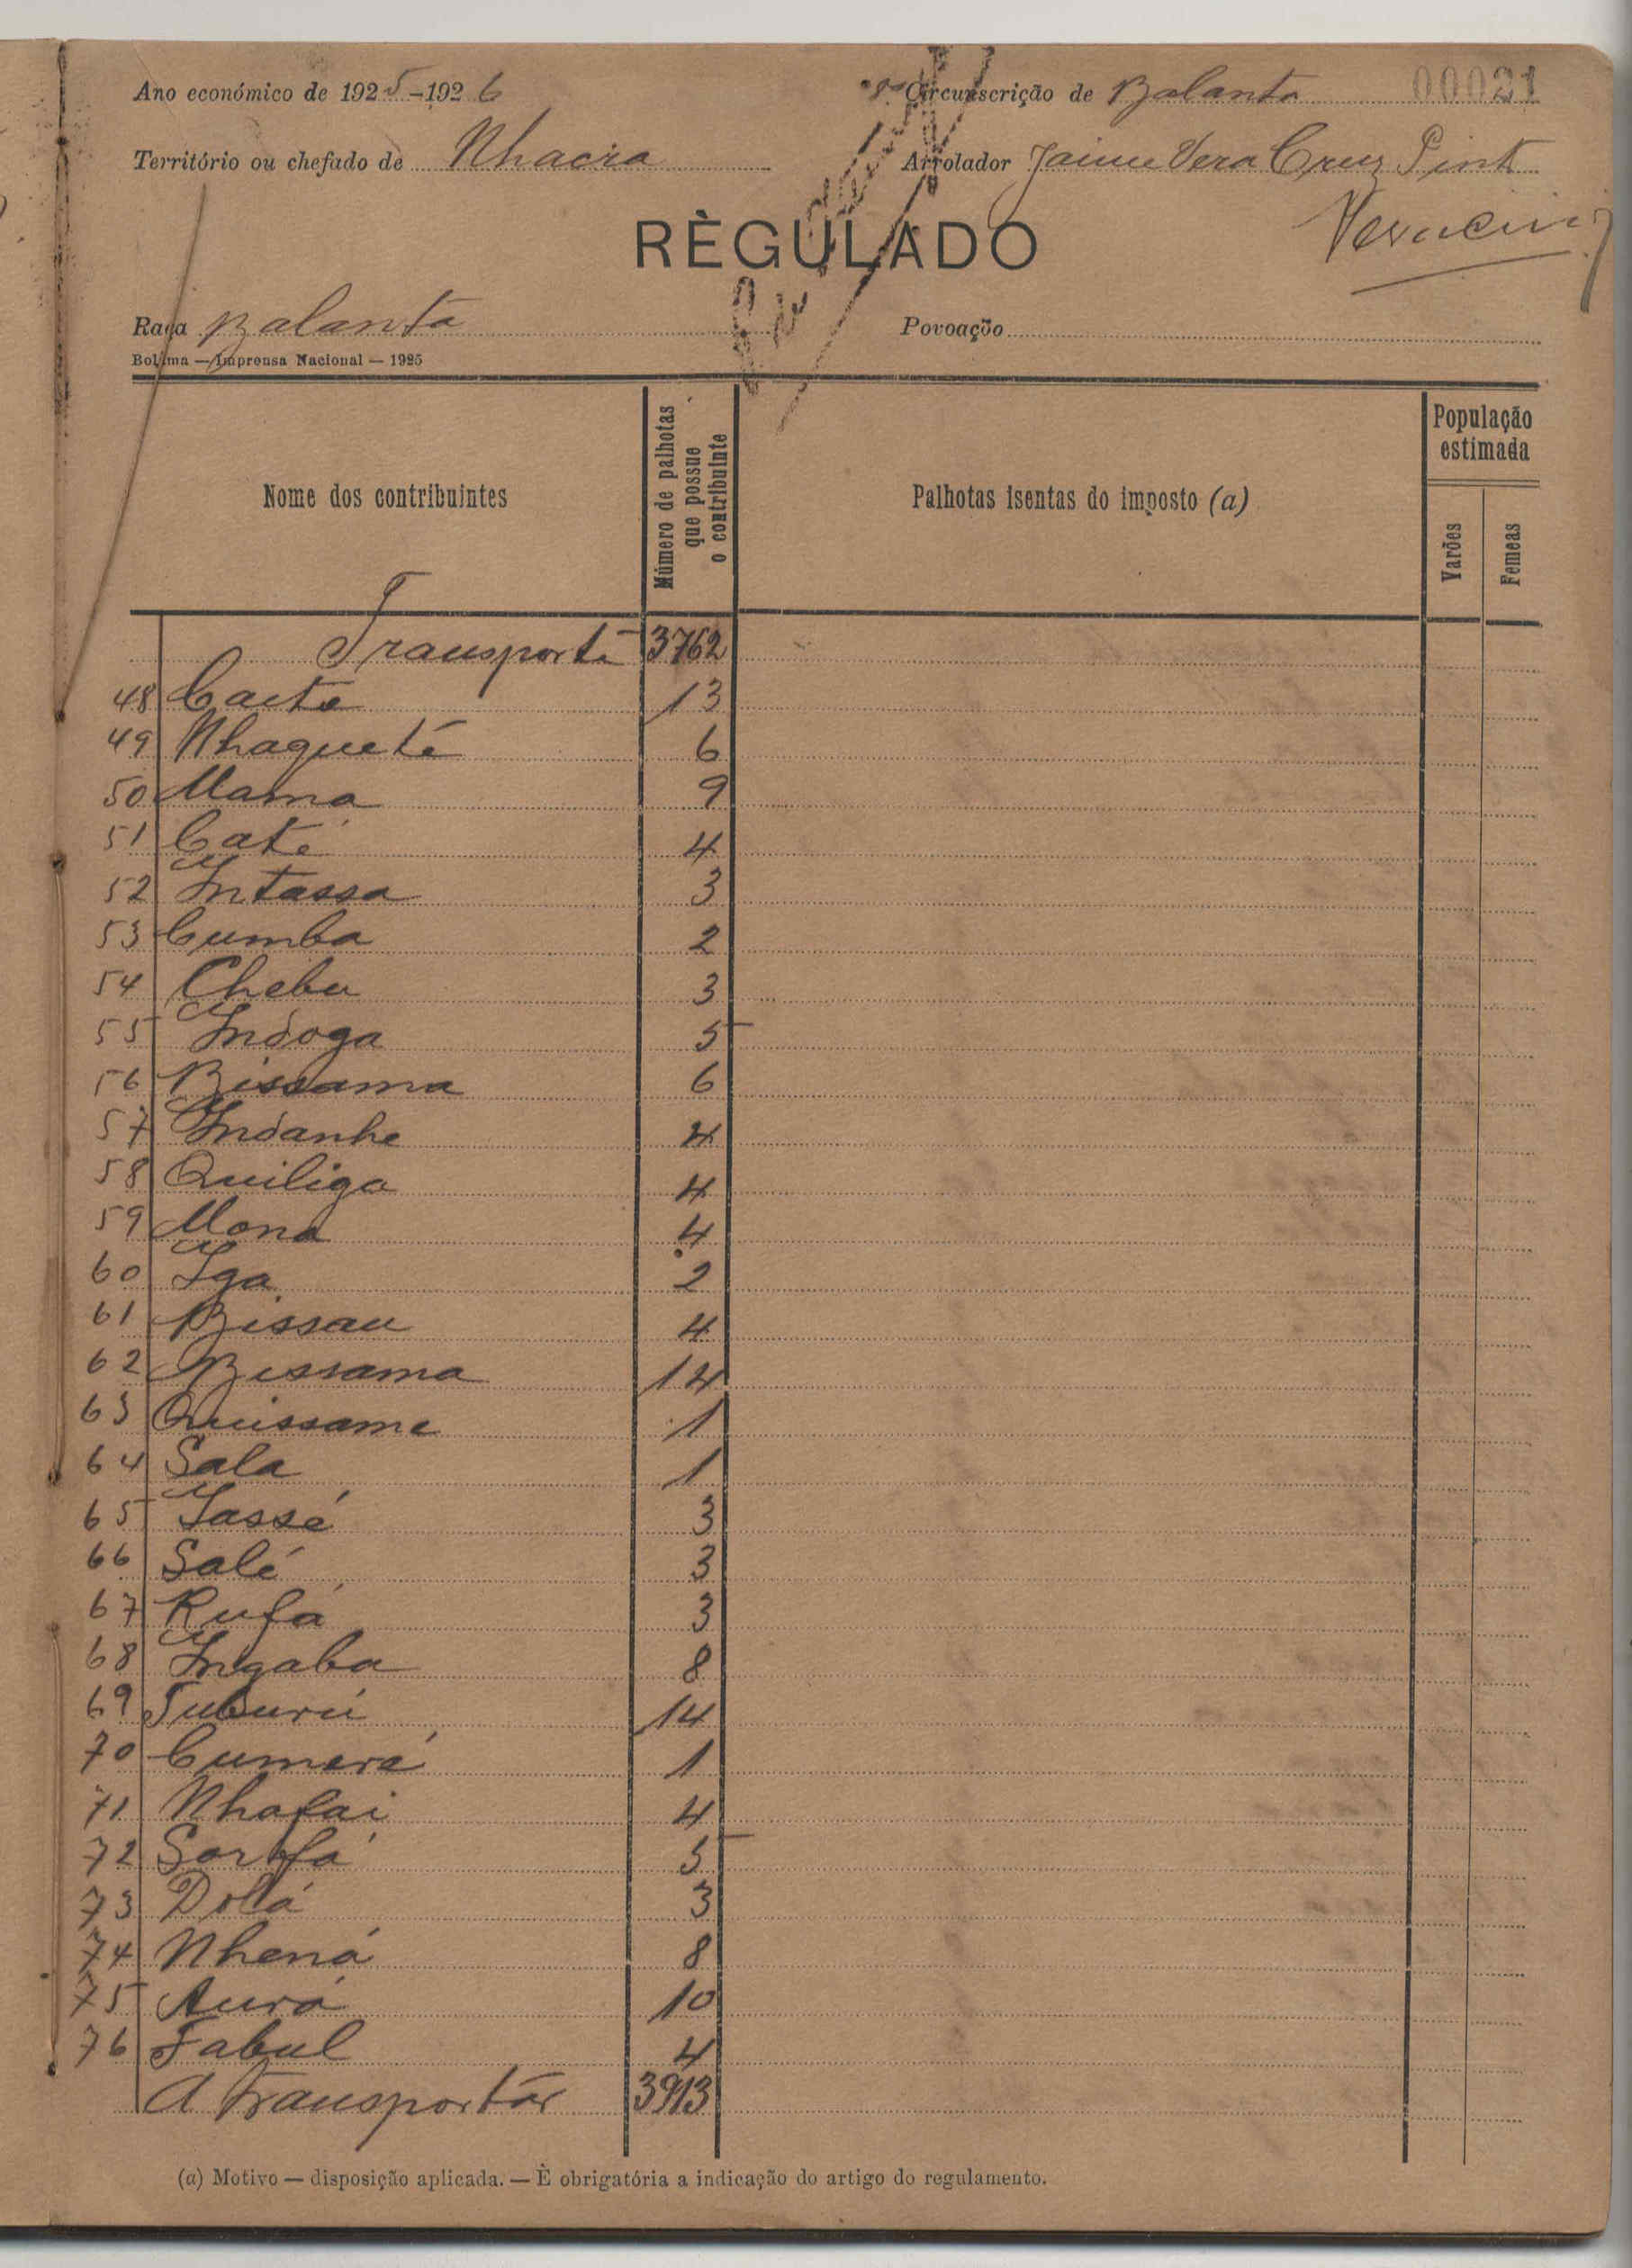 Ano económico de 1925-1926
Circunscrição de Balanta 00021
Território ou chefado de Nhacra
Arrolador Jaime Vera Cruz Pint
RÈGULADO
Raça Balanta
Povoação
Bolama — Imprensa Nacional — 1925
Nome dos contribuintes
Número de palhotas que possue o contribuinte
Palhotas isentas do imposto (a)
População estimada
Varões
Femeas
Transporte 3762
48 Caeto 13
49 Nhaqueté 6
50 Mama 9
51 Caté 4
52 Intassa 3
53 Cumba 2
54 Chebu 3
55 Indoga 5
56 Bissama 6
57 Indanhe 4
58 Quiliga 4
59 Mona 4
60 Iga 2
61 Bissau 4
62 Bissama 14
63 Quissame 1
64 Sala 1
65 Iassé 3
66 Salé 3
67 Rufá 3
68 Ingaba 8
69 Tuburú 14
70 Cumeré 1
71 Nhafai 4
72 5
73 Dolá 3
74 Nhená 8
75 Aurá 10
76 Fabul 4
A transportar 3913
(a) Motivo — disposição aplicada. — È obrigatória a indicação do artigo do regulamento.